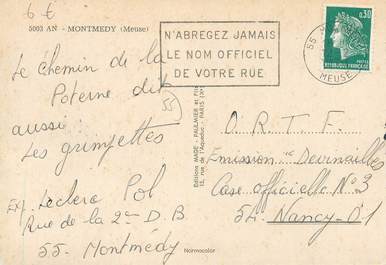 6 €
5003 AN - MONTMEDY (Meuse)
N'ABREGEZ JAMAIS
LE NOM OFFICIEL
DE VOTRE RUE
55
MEUSE
0,30
POSTES
REPUBLIQUE FRANÇAISE
Le chemin de la
Poterne dit
aussi :
Les grimpettes
55
Exp. Leclerc Pol
Rue de la 2me D.B
55. Montmédy
Editions MAGE - PAULMIER et Fils
13, rue de l'Aqueduc - PARIS (Xe)
O. R. T. F.
Emission Devinailles
Case officielle N°3
54. Nancy-01
Normocolor